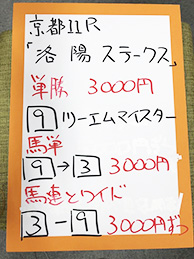 京都11R
「洛陽ステークス
単勝 3000円
9 リーエムマイスター
馬単
9→3 3000円
馬連とワイド
3-9 3000円ずつ